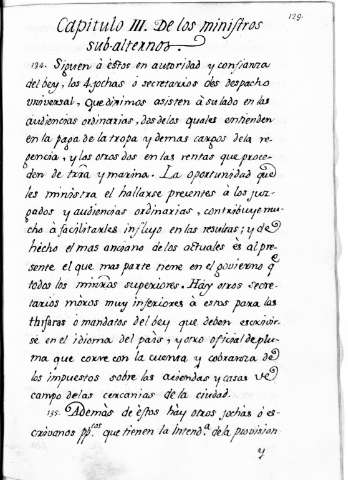 129.
Capitulo III. De los ministros
subalternos.
134. Siguen à èstos en autoridad y confianza
del bey, los 4 jochas ò secretarios del despacho
universal, que dixímos asisten à su lado en las
audiencias ordinarias, dos de los quales entienden
en la paga de la tropa y demas cargos de la re-
gencia, y los otros dos en las rentas que proce-
den de trra y marina. La oportunidad que
les ministra el hallarse presentes à los juz-
gados y audiencias ordinarias, contribuye mu-
cho à facilitarles influjo en las resultas; y de
hecho el mas anciano de los actuales ès al pre-
sente el que mas parte tiene en el govierno q
todos los minros superiores. Hay otros secre-
tarios moros muy inferiores à estos para las
thifaras ò mandatos del bey que deben escrivir-
se en el idioma del país, y otro oficial de plu-
ma que corre con la cuenta y cobranza de
los impuestos sobre las aviendas y casas de
campo de las cercanias de la ciudad.
135. Además de èstos hày otros jochas ò es-
crívanos pptos que tienen la Intenda de la provision
y